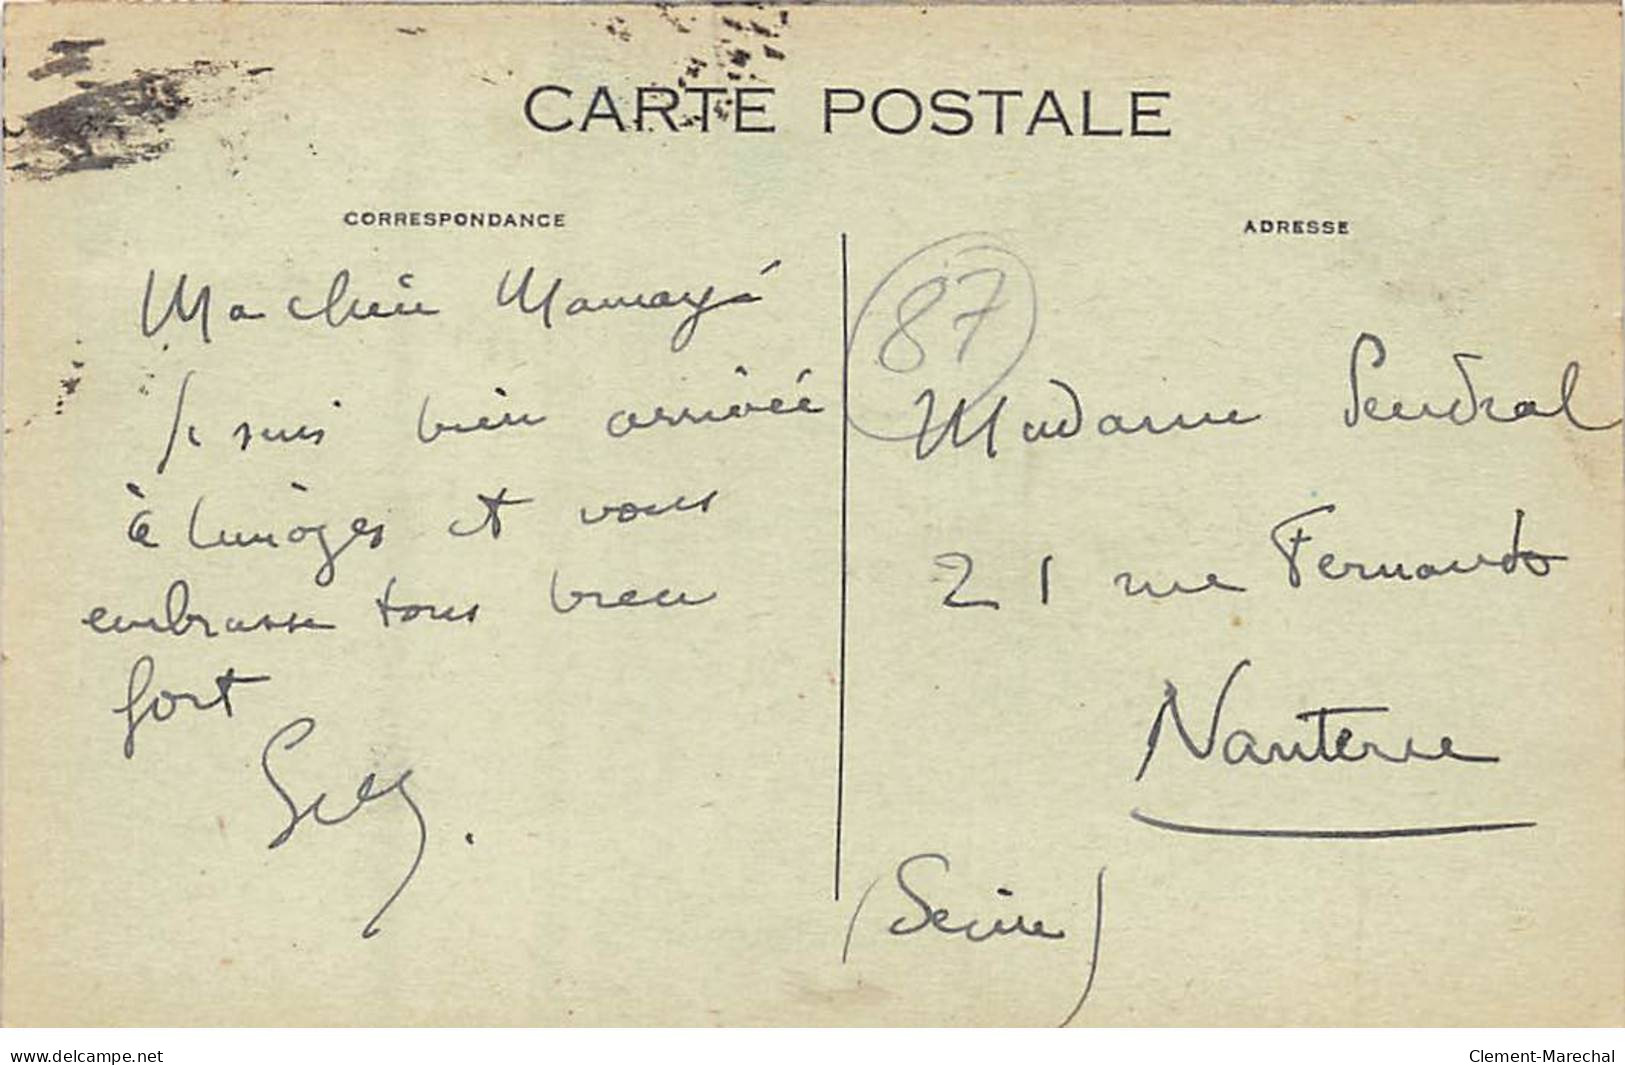 CARTE POSTALE
CORRESPONDANCE
Ma chère Mamayé
Je suis bien arrivée
à Limoges et vous
embrasse tous bien
fort
ADRESSE
87
Madame Sendral
21 rue Fernando
Nanterre
(Seine)
delcampe.net
Clement-Marechal